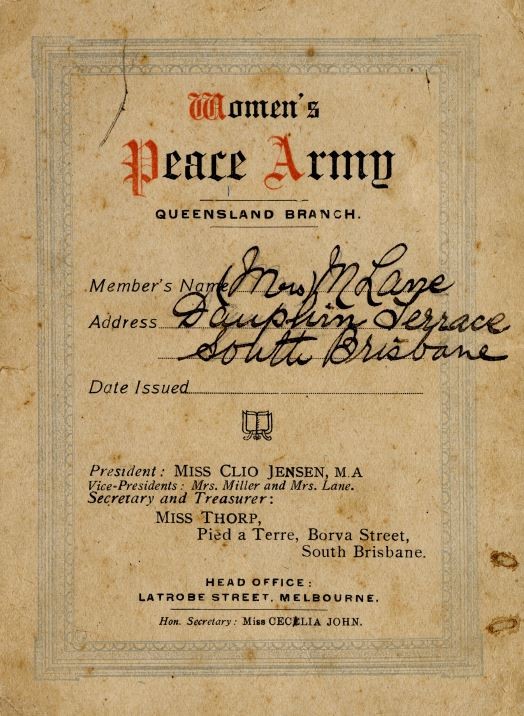 Women's
Peace Army
QUEENSLAND BRANCH.
Member's Name (Mrs) M Lane
Address Dauphin Terrace
South Brisbane
Date Issued
President: MISS CLIO JENSEN, M.A
Vice-Presidents: Mrs. Miller and Mrs. Lane.
Secretary and Treasurer:
MISS THORP,
Pied a Terre, Borva Street,
South Brisbane.
HEAD OFFICE:
LATROBE STREET, MELBOURNE.
Hon. Secretary: Miss CECELIA JOHN.